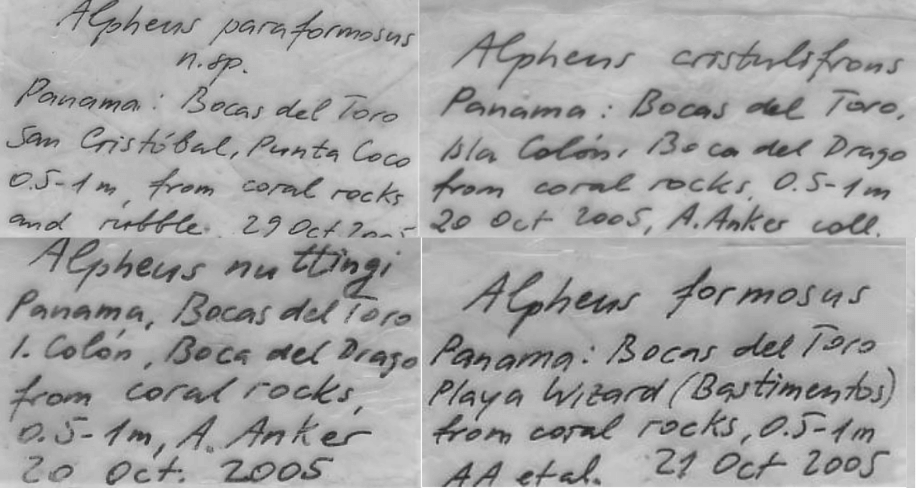 Alpheus paraformosus
n.sp.
Panama: Bocas del Toro
San Cristóbal, Punta Coco
0.5-1m, from coral rocks
and rubble. 29 Oct 2005
Alpheus cristulifrons
Panama: Bocas del Toro,
Isla Colón, Boca del Drago
from coral rocks, 0.5-1m
20 Oct 2005, A. Anker coll.
Alpheus nuttingi
Panama, Bocas del Toro
I. Colón, Boca del Drago
from coral rocks,
0.5-1m, A. Anker
20 Oct. 2005
Alpheus formosus
Panama: Bocas del Toro
Playa Wizard (Bastimentos)
from coral rocks, 0.5-1m
AA et al. 21 Oct 2005